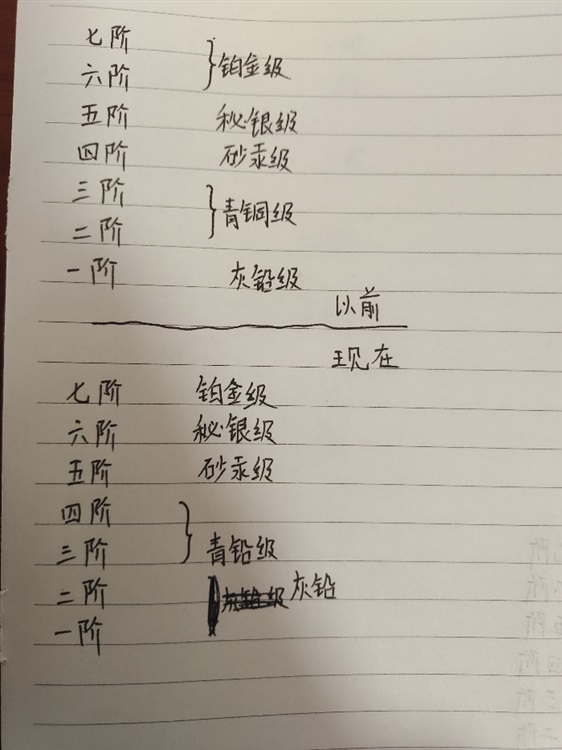 七阶
六阶 }铂金级
五阶 秘银级
四阶 砂汞级
三阶
二阶 }青铜级
一阶 灰铅级
以前
现在
七阶 铂金级
六阶 秘银级
五阶 砂汞级
四阶
三阶 }青铅级
二阶 灰铅级 灰铅
一阶